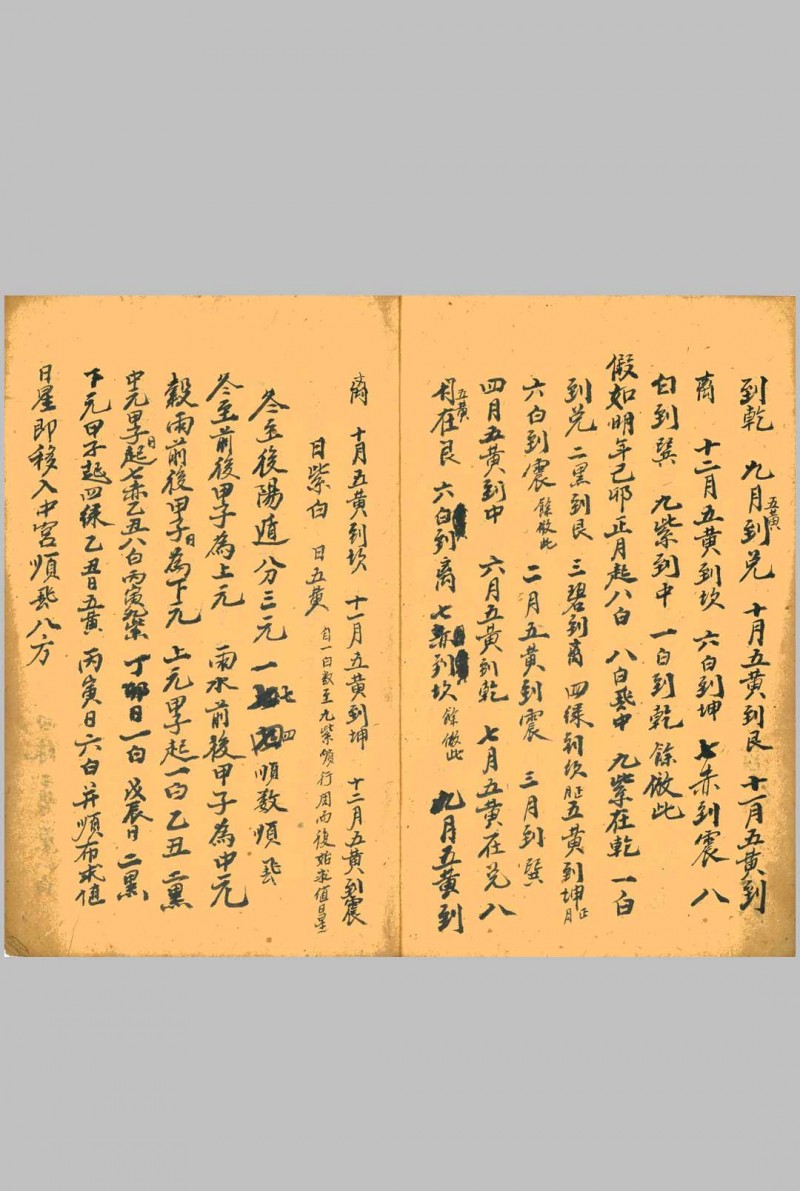 到乾 九月五黃到兌 十月五黃到艮 十一月五黃到
离 十二月五黃到坎 六白到坤 七赤到震 八
白到巽 九紫到中 一白到乾 餘倣此
假如明年己卯正月起八白 八白飛中 九紫在乾 一白
到兌 二黑到艮 三碧到离 四綠到坎 五黃到坤正月
六白到震餘倣此 二月五黃到震 三月到巽
四月五黃到中 六月五黃到乾 七月五黃在兌 八
月五黃在艮 六白到离 七赤到坎餘倣此 九月五黃到
离 十月五黃到坎 十一月五黃到坤 十二月五黃到震
日紫白 日五黃 自一白数至九紫順行周而復始求值日星
冬至後陽遁分三元 一七四順数順飛
冬至前後甲子為上元 雨水前後甲子為中元
穀雨前後甲子日為下元 上元甲子起一白乙丑二黑
中元甲子日起七赤乙丑八白丙寅九紫 丁卯日一白 戊辰日二黑
下元甲子起四綠乙丑日五黃 丙寅日六白並順布求值
日星即移入中宮順飛八方